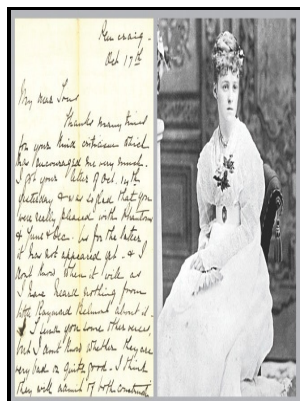 Pen craig -
Oct 17th
My dear Tom
Thanks many times
for your kind criticism which
has encouraged me very much.
I got your letter of Oct. 14th
yesterday & was so glad that you
were really pleased with Phantoms
& June & Dec. - as for the latter
it has not appeared yet - & I
don't know when it will as
I have heard nothing from
Raymond Belmont about it.
I send you some other verses,
but I don't know whether they are
very bad or quite good. I think
they will admit of both constructi